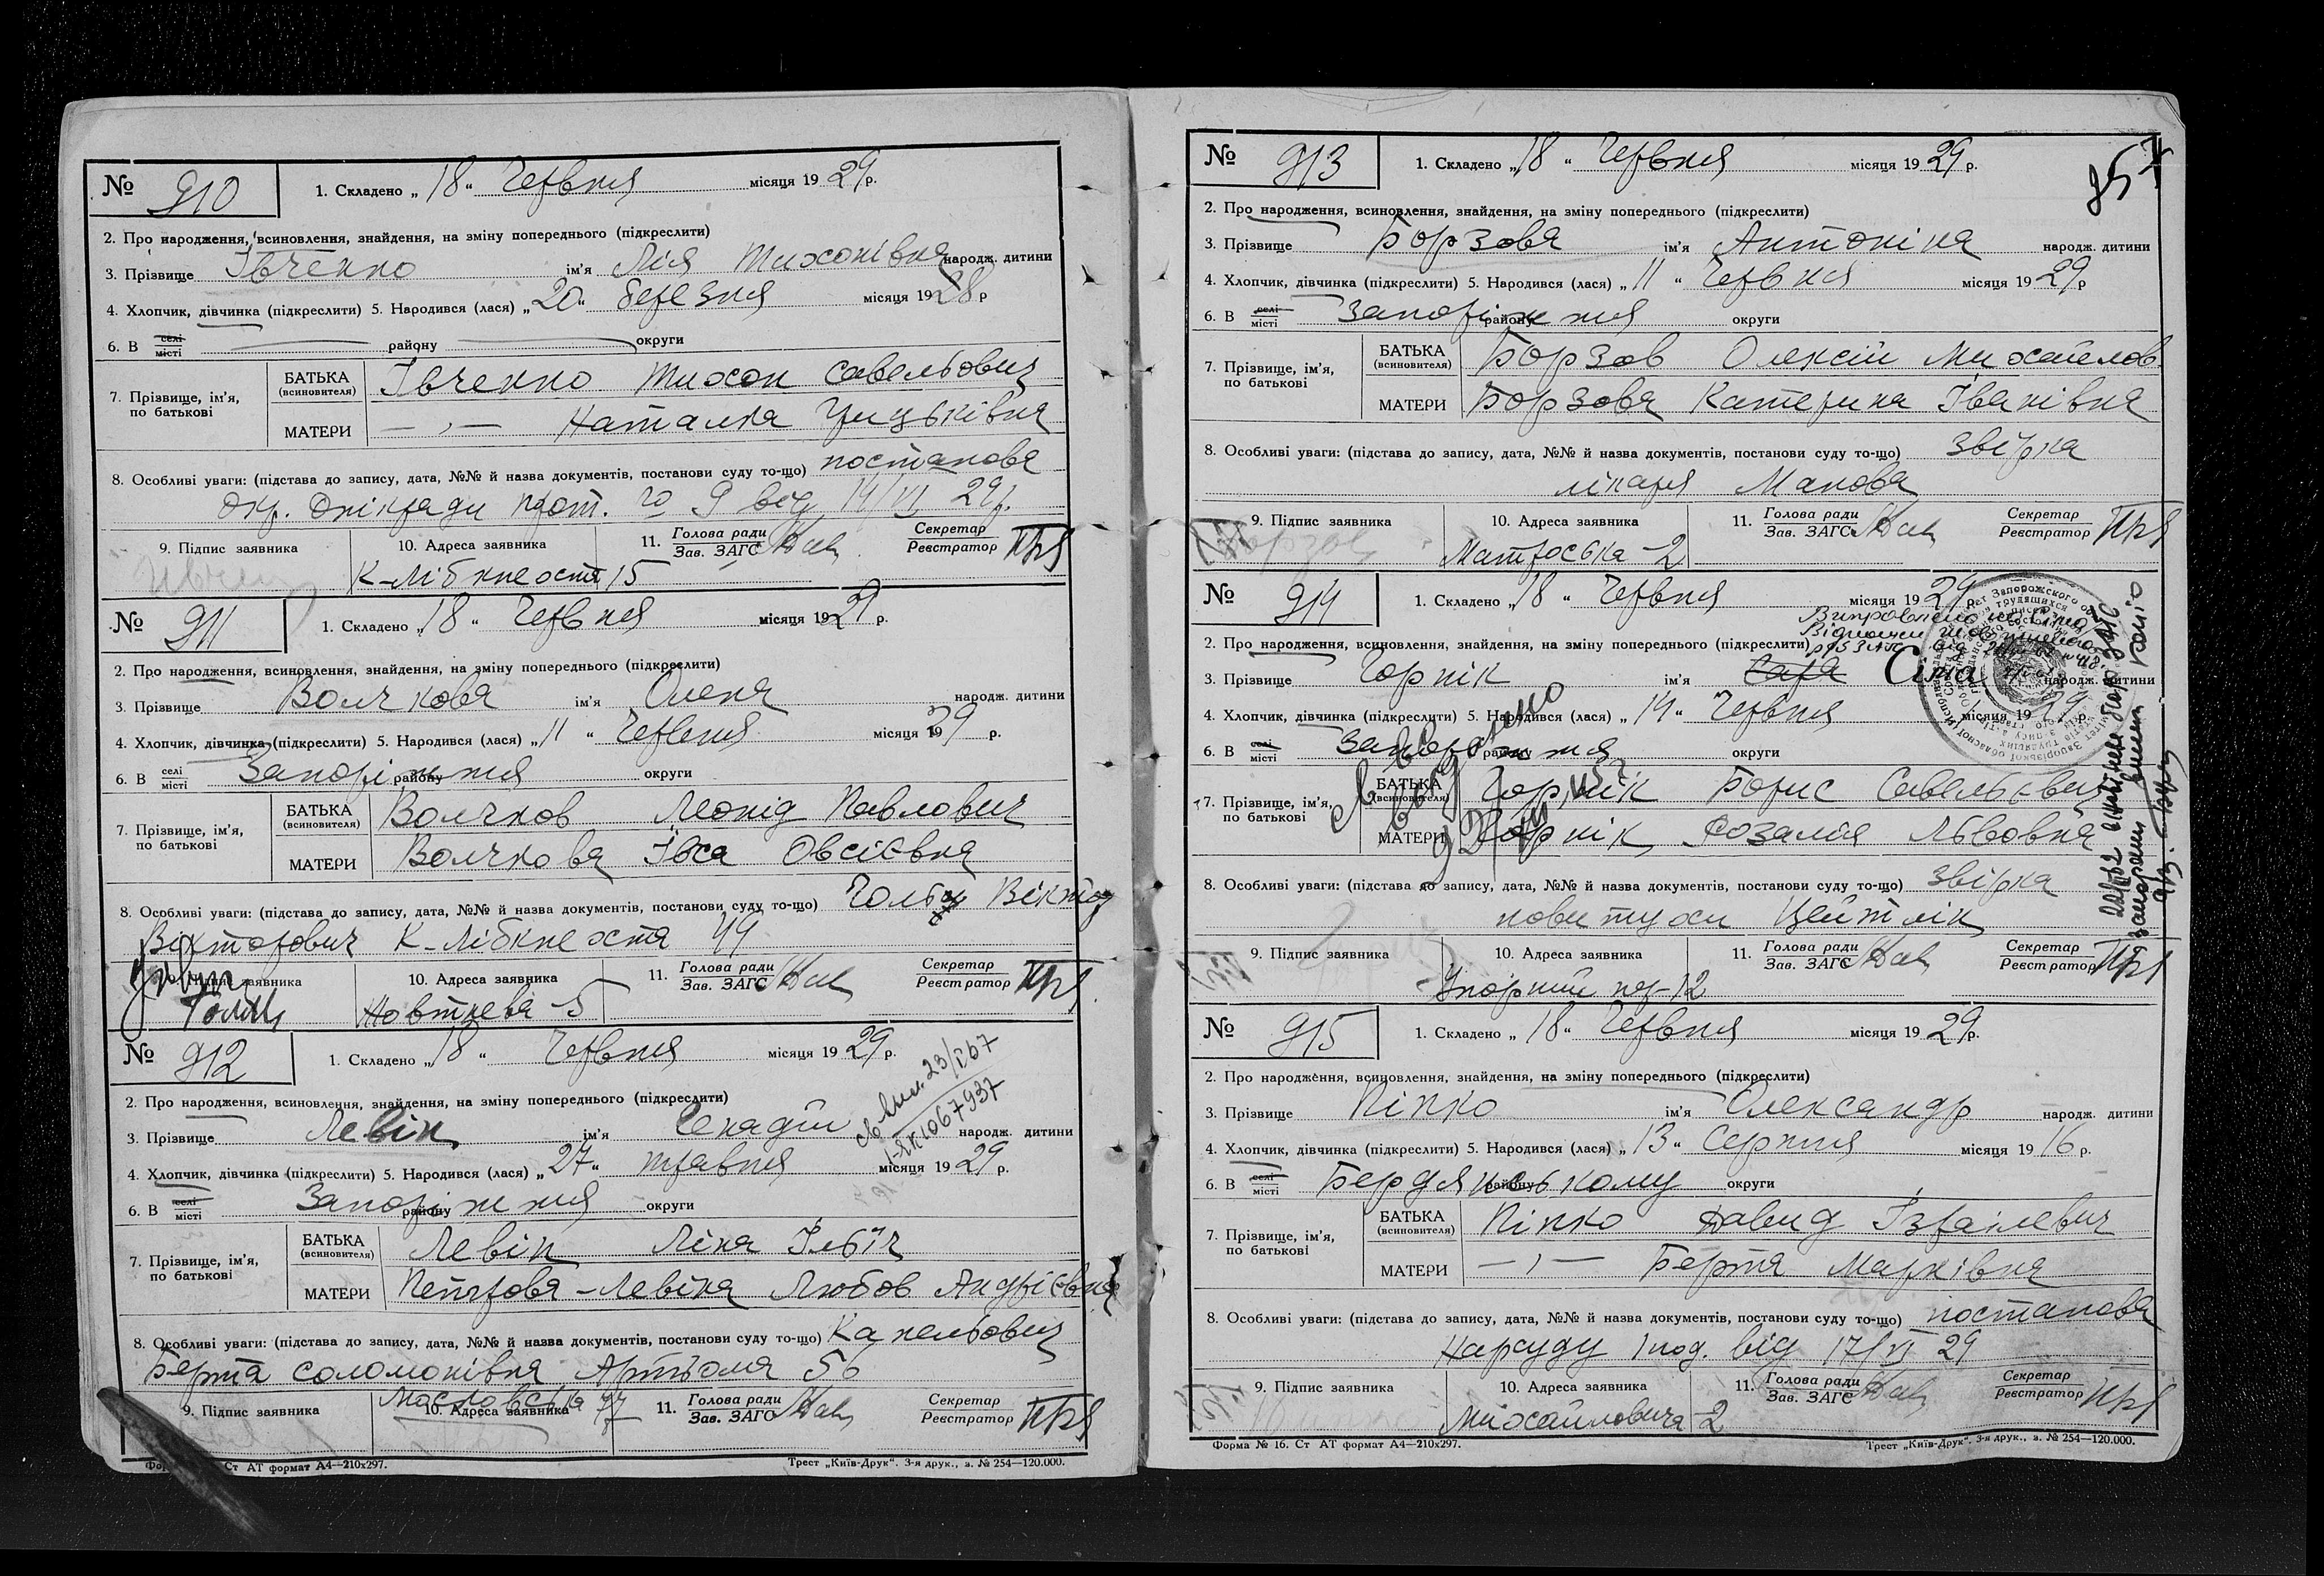 № 910 1. Складено „18“ Червня місяця 1929 р.
2. Про народження, всиновлення, знайдення, на зміну попереднього (підкреслити)
3. Прізвище Івченко ім'я Лія Тихонівна народж. дитини
4. Хлопчик, дівчинка (підкреслити) 5. Народився (лася) „20“ березня місяця 1928 р
6. В селі місті району округи
7. Прізвище, ім'я, по батькові БАТЬКА (всиновителя) Івченко Тихон Савельович
МАТЕРИ —„— Наталка Грицьківна
8. Особливі уваги: (підстава до запису, дата, №№ й назва документів, постанови суду то-що) постанова
окр. опікради прот. № 9 від 14/VI 29 р.
9. Підпис заявника 10. Адреса заявника 11. Голова ради Зав. ЗАГС Секретар Реєстратор
К-Лібкнехта 15
№ 911 1. Складено „18“ Червня місяця 1929 р.
2. Про народження, всиновлення, знайдення, на зміну попереднього (підкреслити)
3. Прізвище Волчкова ім'я Олена народж. дитини
4. Хлопчик, дівчинка (підкреслити) 5. Народився (лася) „11“ Червня місяця 1929 р.
6. В селі місті Запоріжжя району округи
7. Прізвище, ім'я, по батькові БАТЬКА (всиновителя) Волчков Леонід Павлович
МАТЕРИ Волчкова Івса Овсієвна
8. Особливі уваги: (підстава до запису, дата, №№ й назва документів, постанови суду то-що) Віктор
Вікторович К-Лібкнехта 44
9. Підпис заявника 10. Адреса заявника 11. Голова ради Зав. ЗАГС Секретар Реєстратор
Жовтнева -5
№ 912 1. Складено „18“ Червня місяця 1929 р.
2. Про народження, всиновлення, знайдення, на зміну попереднього (підкреслити)
3. Прізвище Левін ім'я Генадій народж. дитини
4. Хлопчик, дівчинка (підкреслити) 5. Народився (лася) „27“ травня місяця 1929 р.
6. В селі місті Запоріжжя району округи
7. Прізвище, ім'я, по батькові БАТЬКА (всиновителя) Левін Ліна Ільїч
МАТЕРИ Петрова-Левіна Любов Андрієвна
8. Особливі уваги: (підстава до запису, дата, №№ й назва документів, постанови суду то-що) Капельович
Берта Соломонівна Артьома 56
9. Підпис заявника 10. Адреса заявника 11. Голова ради Зав. ЗАГС Секретар Реєстратор
Ст АТ формат А4—210x297. Трест „Київ-Друк“. 3-я друк., з. № 254—120.000.
№ 913 1. Складено „18“ Червня місяця 1929 р.
2. Про народження, всиновлення, знайдення, на зміну попереднього (підкреслити)
3. Прізвище Борзова ім'я Антоніна народж. дитини
4. Хлопчик, дівчинка (підкреслити) 5. Народився (лася) „11“ Червня місяця 1929 р
6. В селі місті Запоріжжя району округи
7. Прізвище, ім'я, по батькові БАТЬКА (всиновителя) Борзов Олексій Михайлов.
МАТЕРИ Борзова Катерина Іванівна
8. Особливі уваги: (підстава до запису, дата, №№ й назва документів, постанови суду то-що) звірка
лікаря Макова
9. Підпис заявника 10. Адреса заявника 11. Голова ради Зав. ЗАГС Секретар Реєстратор
Матроська -2
№ 914 1. Складено „18“ Червня місяця 1929 р.
2. Про народження, всиновлення, знайдення, на зміну попереднього (підкреслити)
3. Прізвище Горнік ім'я Сара Сіма народж. дитини
4. Хлопчик, дівчинка (підкреслити) 5. Народився (лася) „14“ Червня місяця 1929 р.
6. В селі місті Запоріжжя району округи
7. Прізвище, ім'я, по батькові БАТЬКА (всиновителя) Горнік Борис Савельєвич
МАТЕРИ Горнік Розалія Львовна
8. Особливі уваги: (підстава до запису, дата, №№ й назва документів, постанови суду то-що) звірка
повитухи Цейтлін
9. Підпис заявника 10. Адреса заявника 11. Голова ради Зав. ЗАГС Секретар Реєстратор
Упорний пер-12
№ 915 1. Складено „18“ Червня місяця 1929 р.
2. Про народження, всиновлення, знайдення, на зміну попереднього (підкреслити)
3. Прізвище Піпко ім'я Олександр народж. дитини
4. Хлопчик, дівчинка (підкреслити) 5. Народився (лася) „13“ Серпня місяця 1916 р.
6. В селі місті Бердянському району округи
7. Прізвище, ім'я, по батькові БАТЬКА (всиновителя) Піпко Давид Ізраїлевич
МАТЕРИ —„— Берта Марківна
8. Особливі уваги: (підстава до запису, дата, №№ й назва документів, постанови суду то-що) постанова
Нарсуду 1 под. від 17/VI 29
9. Підпис заявника 10. Адреса заявника 11. Голова ради Зав. ЗАГС Секретар Реєстратор
Михайловича -2
Форма № 16. Ст АТ формат А4—210x297. Трест „Київ-Друк“. 3-я друк., з. № 254—120.000.